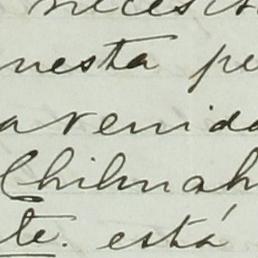 neces
nesta pe
avenida
Chihuah
te. está